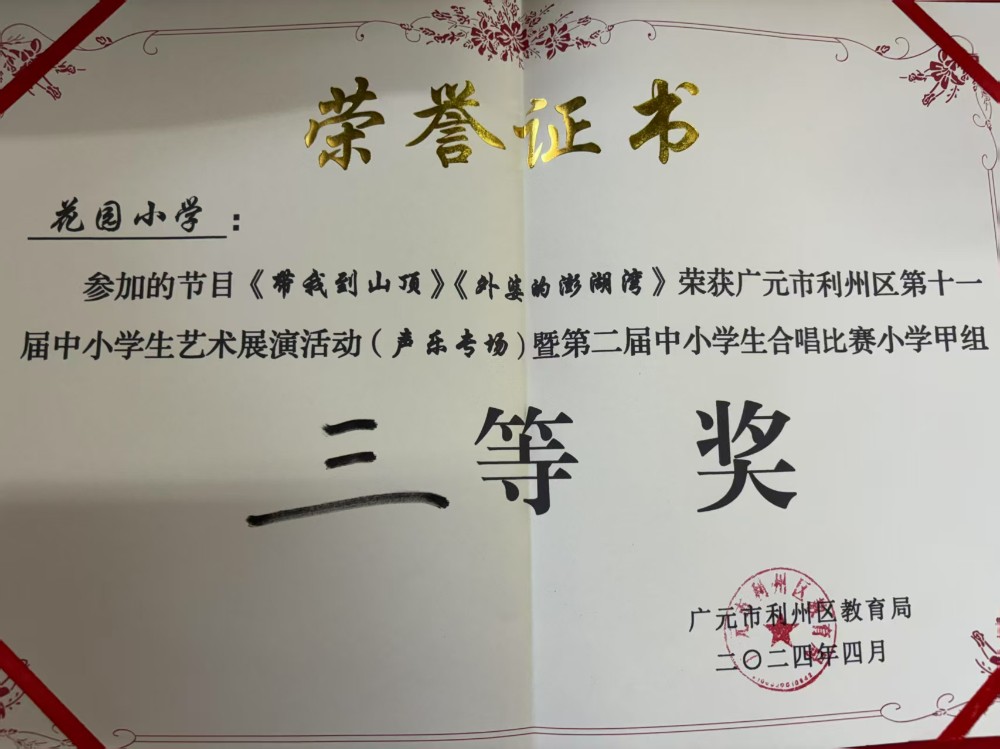 荣誉证书
花园小学：
参加的节目《带我到山顶》《外婆的澎湖湾》荣获广元市利州区第十一
届中小学生艺术展演活动（声乐专场）暨第二届中小学生合唱比赛小学甲组
三等奖
广元市利州区教育局
二〇二四年四月